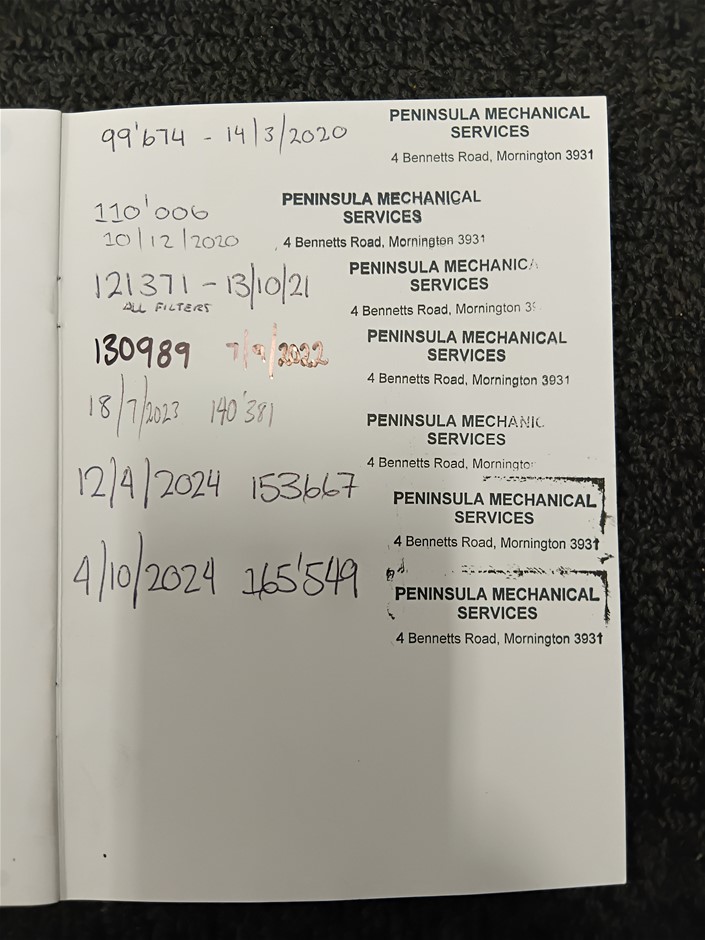 99'674 - 14/3/2020
PENINSULA MECHANICAL
SERVICES
4 Bennetts Road, Mornington 3931
110'006
10/12/2020
PENINSULA MECHANICAL
SERVICES
4 Bennetts Road, Mornington 3931
121371 - 13/10/21
ALL FILTERS
PENINSULA MECHANICA
SERVICES
4 Bennetts Road, Mornington 39
130989 7/9/2022
PENINSULA MECHANICAL
SERVICES
4 Bennetts Road, Mornington 3931
18/7/2023 140'381
PENINSULA MECHANIC
SERVICES
4 Bennetts Road, Mornington
12/4/2024 153667
PENINSULA MECHANICAL
SERVICES
4 Bennetts Road, Mornington 3931
4/10/2024 165'549
PENINSULA MECHANICAL
SERVICES
4 Bennetts Road, Mornington 3931